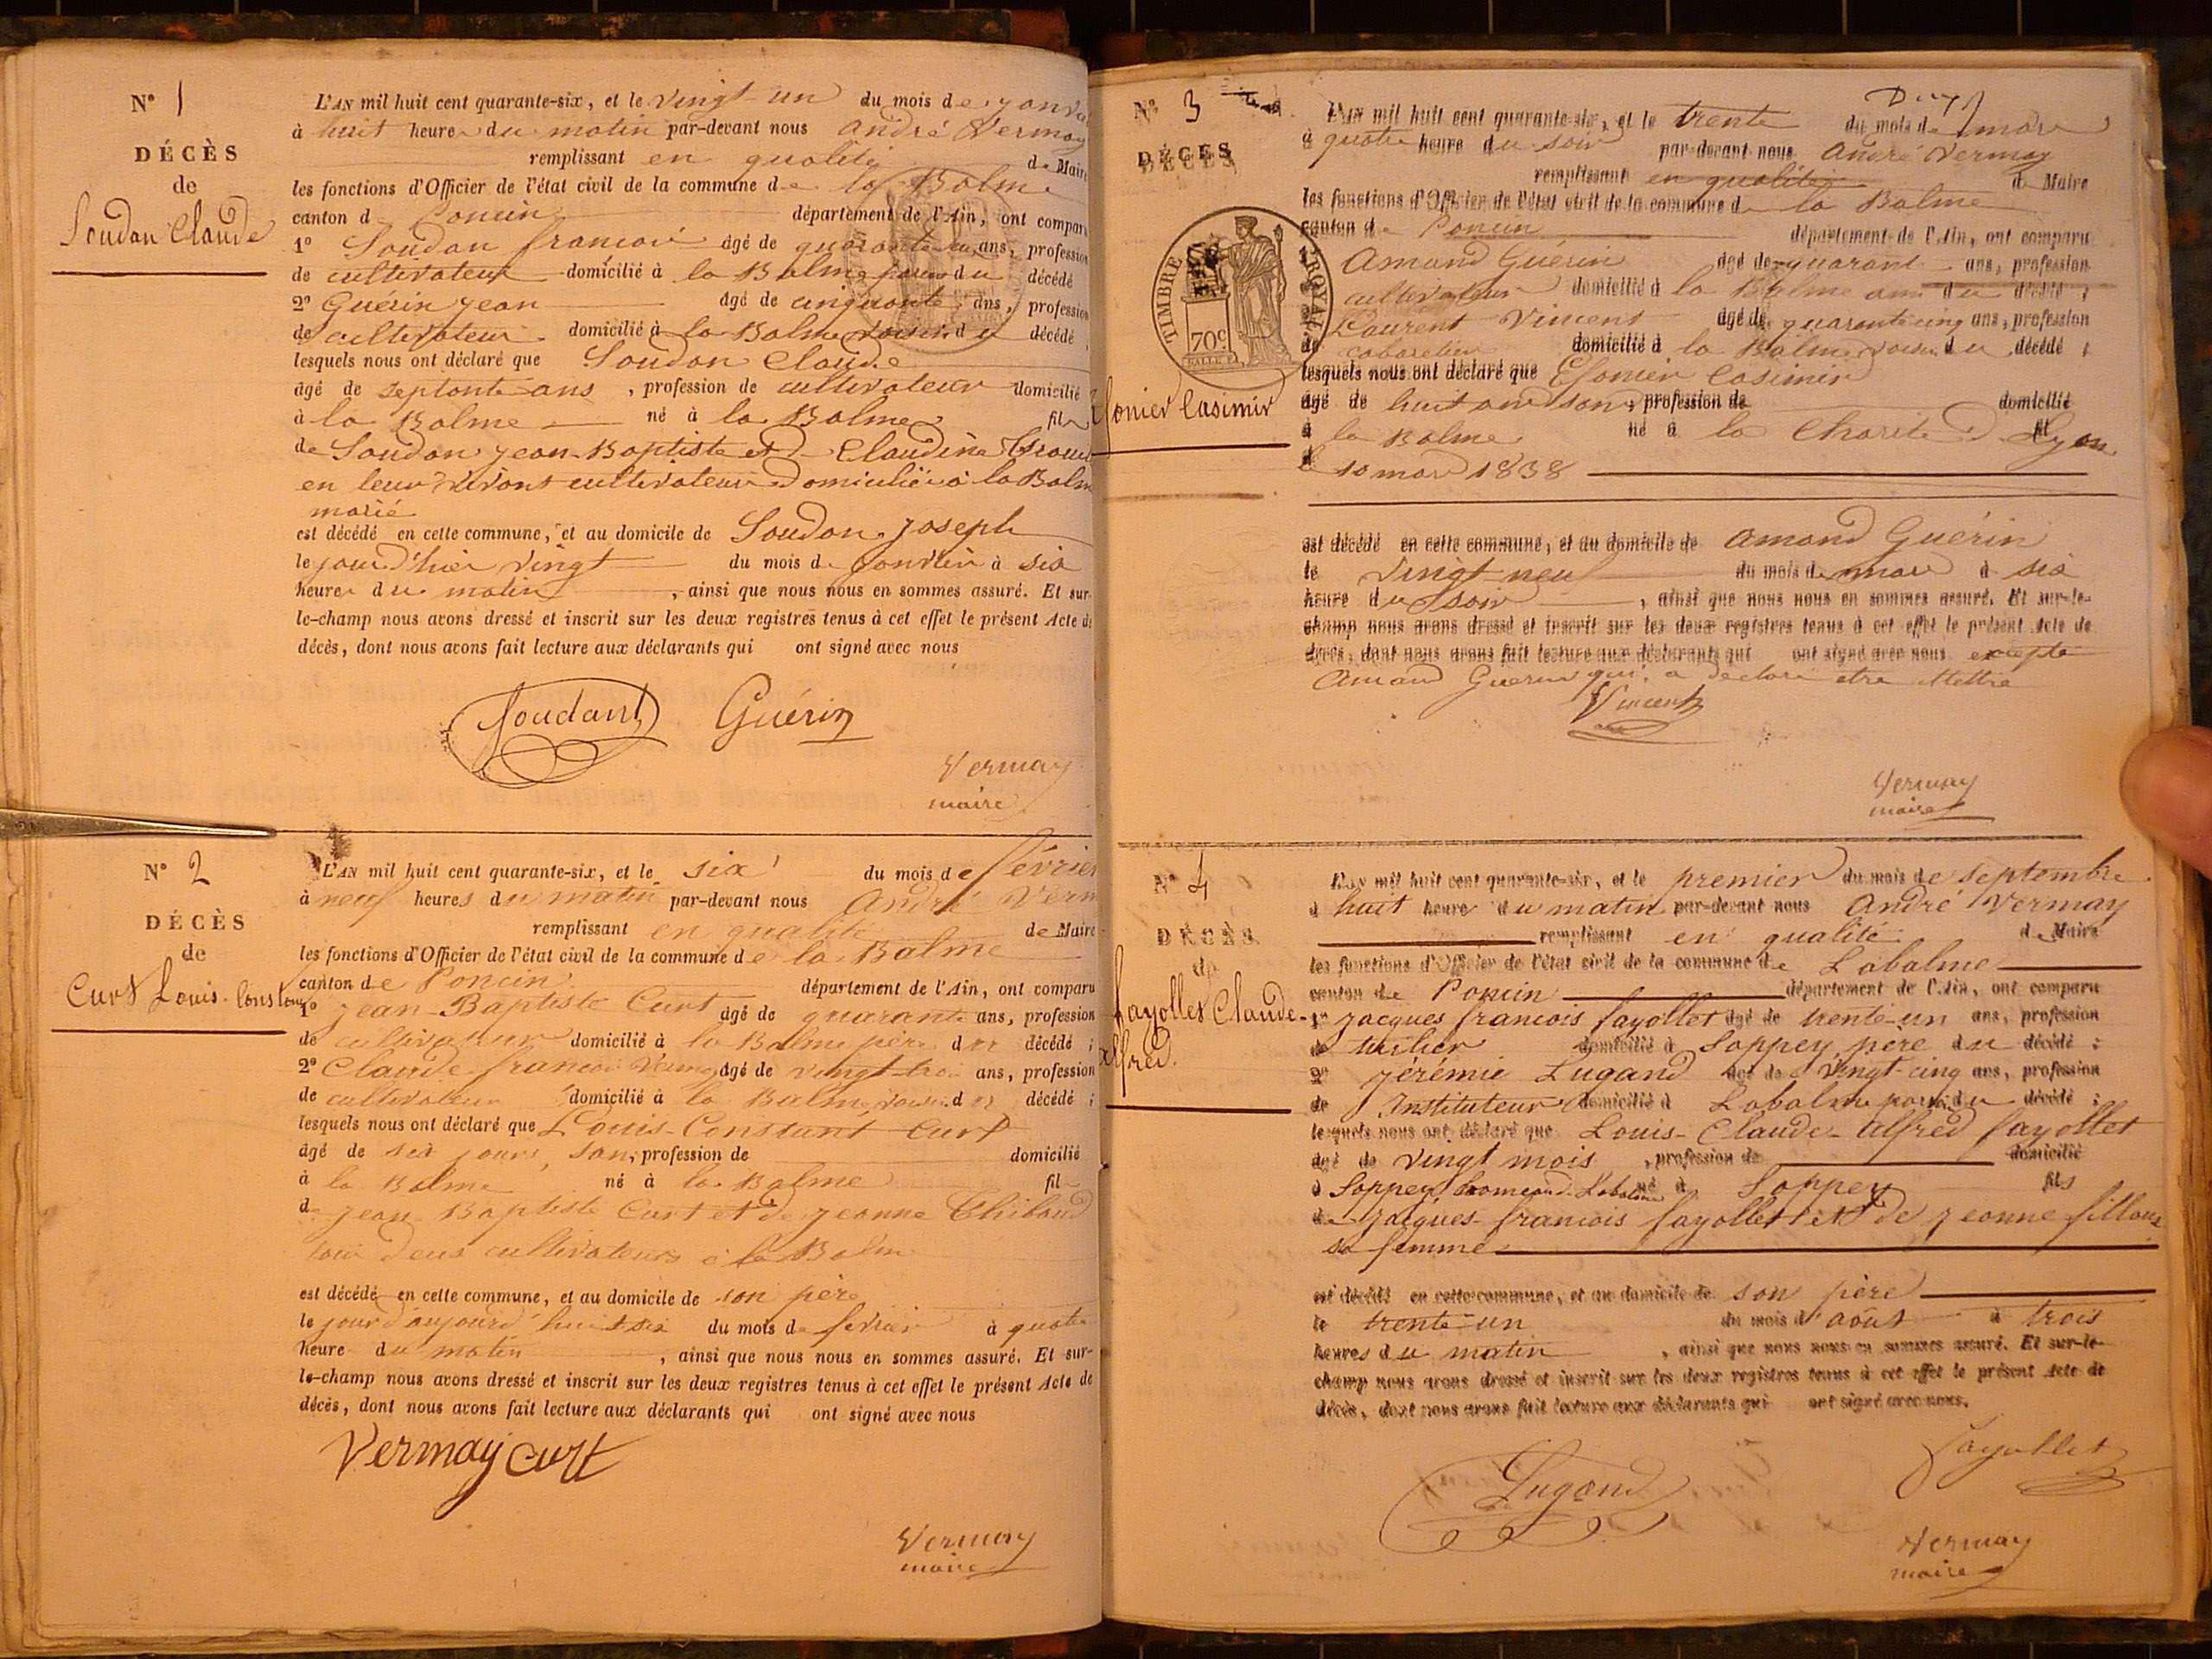 N° 1
DÉCÈS
de
Soudan Claude
L'AN mil huit cent quarante-six, et le vingt-un du mois de
à huit heure du matin par-devant nous André Vermay
remplissant en qualité de Maire
les fonctions d'Officier de l'état civil de la commune de la Balme
canton de Poncin département de l'Ain, ont comparu
1° Soudan françois âgé de quarante ans, profession
de cultivateur domicilié à la Balme du décédé
2° Guérin jean âgé de cinquante ans, profession
de cultivateur domicilié à la Balme voisin du décédé
lesquels nous ont déclaré que Soudan Claude
âgé de septante ans, profession de cultivateur domicilié
à la Balme né à la Balme fils
de Soudan jean-Baptiste et de Claudine
en leur vivant cultivateurs domiciliés à la Balme
marié
est décédé en cette commune, et au domicile de Soudan joseph
le jour d'hier vingt du mois de janvier à six
heure du matin, ainsi que nous nous en sommes assuré. Et sur-
le-champ nous avons dressé et inscrit sur les deux registres tenus à cet effet le présent Acte de
décès, dont nous avons fait lecture aux déclarants qui ont signé avec nous
Soudant Guérin
Vermay
maire
N° 2
DÉCÈS
de
Curt Louis-Constant
L'AN mil huit cent quarante-six, et le six du mois de février
à neuf heures du matin par-devant nous André Verm
remplissant en qualité de Maire
les fonctions d'Officier de l'état civil de la commune de la Balme
canton de Poncin département de l'Ain, ont comparu
1° jean-Baptiste Curt âgé de quarante ans, profession
de cultivateur domicilié à la Balme père du décédé;
2° Claude françois âgé de vingt-trois ans, profession
de cultivateur domicilié à la Balme voisin du décédé;
lesquels nous ont déclaré que Louis-Constant Curt
âgé de six jours, sans profession de domicilié
à la Balme né à la Balme fils
de jean Baptiste Curt et de jeanne Thiboud
tous deux cultivateurs à la Balme
est décédé en cette commune, et au domicile de son père
le jour d'aujourd'hui six du mois de février à quatre
heure du matin, ainsi que nous nous en sommes assuré. Et sur-
le-champ nous avons dressé et inscrit sur les deux registres tenus à cet effet le présent Acte de
décès, dont nous avons fait lecture aux déclarants qui ont signé avec nous
Vermay Curt
Vermay
maire
N° 3
DÉCÈS
TIMBRE ROYAL
70c
Esonier Casimir
L'AN mil huit cent quarante-six, et le trente du mois de mars
à quatre heure du soir par-devant nous André Vermay
remplissant en qualité de Maire
les fonctions d'Officier de l'état civil de la commune de la Balme
canton de Poncin département de l'Ain, ont comparu
Amand Guérin âgé de quarante ans, profession
cultivateur domicilié à la Balme ami du décédé;
Laurent Vincent âgé de quarante cinq ans, profession
de cabaretier domicilié à la Balme voisin du décédé;
lesquels nous ont déclaré que Esonier Casimir
âgé de huit ans sans profession de domicilié
à la Balme né à la Charité de Lyon
le 10 mars 1838
est décédé en cette commune, et au domicile de Amand Guérin
le vingt-neuf du mois de mars à six
heure du soir, ainsi que nous nous en sommes assuré. Et sur-le-
champ nous avons dressé et inscrit sur les deux registres tenus à cet effet le présent Acte de
décès, dont nous avons fait lecture aux déclarants qui ont signé avec nous excepté
Amand Guérin qui a déclaré être illettré
Vincent
Vermay
maire
N° 4
DÉCÈS
de
fayollet Claude-
alfred.
L'AN mil huit cent quarante-six, et le premier du mois de septembre
à huit heure du matin par-devant nous André Vermay
remplissant en qualité de Maire
les fonctions d'Officier de l'état civil de la commune de Labalme
canton de Poncin département de l'Ain, ont comparu
1° jacques françois fayollet âgé de trente-un ans, profession
de tuilier domicilié à Soppey père du décédé;
2° jérémie Lugand âgé de vingt-cinq ans, profession
de Instituteur domicilié à Labalme du décédé;
lesquels nous ont déclaré que Louis-Claude-alfred fayollet
âgé de vingt mois, profession de domicilié
à Soppey né à Soppey fils
de jacques-françois fayollet et de jeanne
sa femme
est décédé en cette commune, et au domicile de son père
le trente-un du mois d'août à trois
heures du matin, ainsi que nous nous en sommes assuré. Et sur-le-
champ nous avons dressé et inscrit sur les deux registres tenus à cet effet le présent Acte de
décès, dont nous avons fait lecture aux déclarants qui ont signé avec nous.
Fayollet
Lugand
Vermay
maire